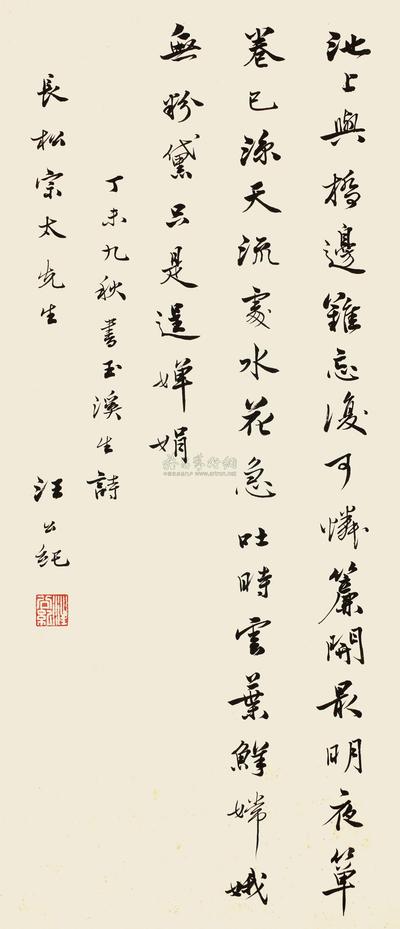 池上與橋邊難忘復可憐簾開最明夜簟
卷已涼天流處水花急吐時雲葉鮮嫦娥
無粉黛只是逞嬋娟
丁未九秋書玉溪生詩
長松宗太先生 汪公紀